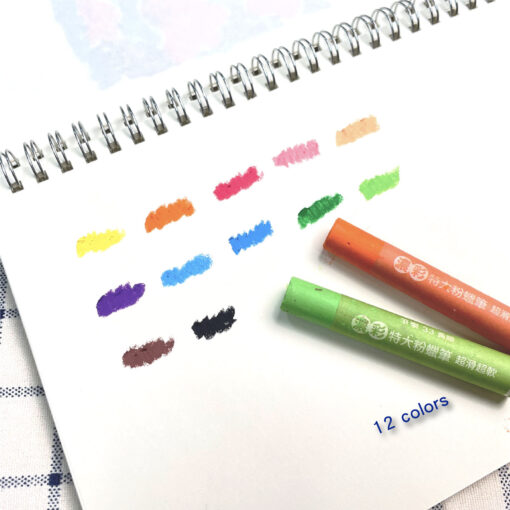 濃彩 特大粉蠟筆 超滑
濃彩 特大粉蠟筆 超滑超軟
12 colors